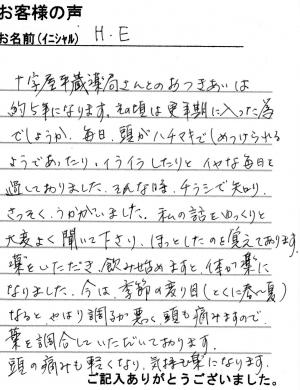 お客様の声
お名前(イニシャル) H.E
十字屋平蔵薬局さんとのおつきあいは
約5年になります。その頃は更年期に入った為
でしょうか、毎日、頭がハチマキでしめつけられる
ようであったり、イライラしたりとイヤな毎日を
過しておりました。そんな時、チラシで知り、
さっそく、うかがいました。私の話をゆっくりと
大変よく聞いて下さり、ほっとしたのを覚えてあります。
薬をいただき、飲み始めますと、体が楽に
なりました。今は、季節の変り目(とくに春~夏)
なるとやはり調子が悪く頭も痛みますので
薬を調合していただいております。
頭の痛みも軽くなり、気持も楽になります。
ご記入ありがとうございました。